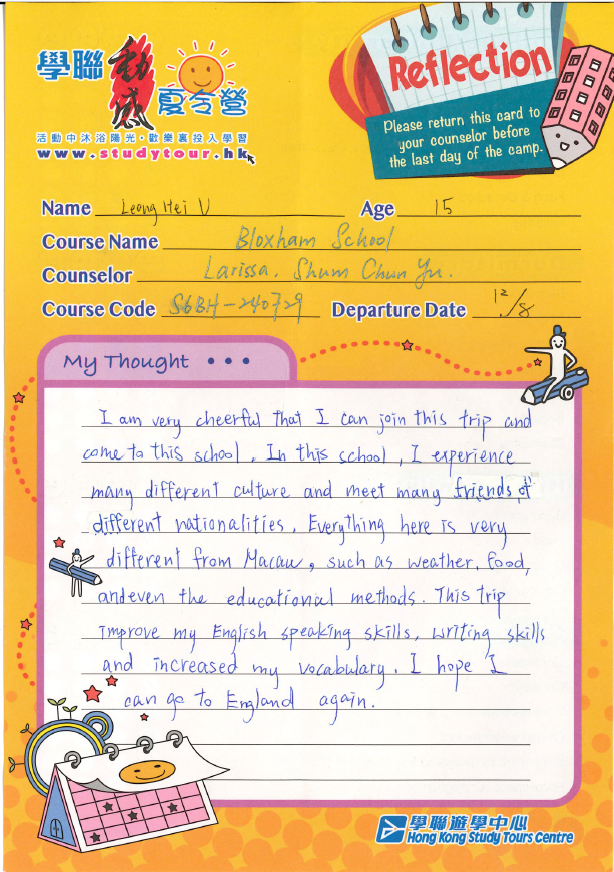 學聯 動感 夏令營
活動中沐浴陽光·歡樂裏投入學習
www.studytour.hk
Reflection
Please return this card to
your counselor before
the last day of the camp.
Name Leong Hei U Age 15
Course Name Bloxham School
Counselor Larissa. Shum Chun Yu.
Course Code S6BH-240729 Departure Date 12/8
My Thought • • •
I am very cheerful that I can join this trip and
come to this school. In this school, I experience
many different culture and meet many friends of
different nationalities. Everything here is very
different from Macau, such as weather. food,
andeven the educational methods. This trip
improve my English speaking skills, writing skills
and increased my vocabulary. I hope I
can go to England again.
學聯遊學中心
Hong Kong Study Tours Centre